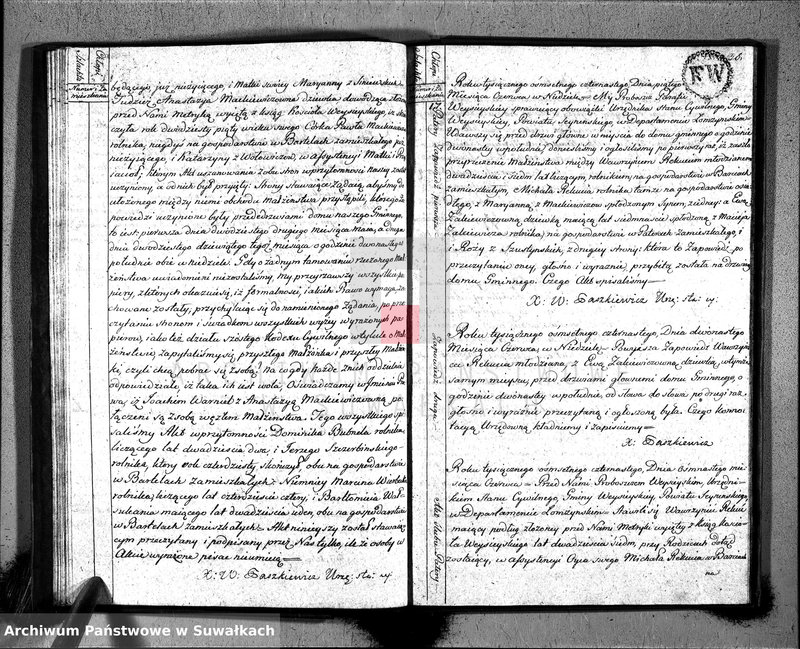 będącego już nieżyjącego, i Matki swoiey Maryanny z
tudzież Anastazya Mackiewiczowna dziewka dowodząca
przed Nami Metryką wyiętą z ksiąg Kościoła Weysieyskiego, iż skoń
czyła rok dwudziesty piąty wieku swego Córka Pawła Mackiewicza
rolnika, niegdyś na gospodarstwie w Bartelach zamieszkałego
nieżyjącego, i Katarzyny z Wołowiczów, w assystencyi Matki i Przy
iaciół, którym Akt uszanowania z obu stron w przytomności naszey został
uczyniony, a od nich był przyięty: Strony stawaiące żądaią abyśmy do
ułożonego między niemi obchodu małżeństwa przystąpili, którego Za
powiedzi uczynione były przed drzwiami domu naszego Gminnego,
to iest: pierwsza dnia dwudziestego drugiego miesiąca Maia, a druga
dnia dwudziestego dziewiątego tegoż miesiąca o godzinie dwunastey w
południe obie w niedziele. Gdy o żadnym tamowaniu rzeczonego Mał
żeństwa uwiadomieni niezostaliśmy, My przeyrzawszy wszystkie pa
piery, z których okazuie się, iż formalności, iakich Prawo wymaga, za
chowane zostały, przychylaiąc się do namienionego żądania, po prze
czytaniu stronom i świadkom wszystkich wyżey wyrażonych pa
pierow, iako też działu szóstego Kodexu Cywilnego w tytule o Mał
żeństwie, zapytaliśmy się przyszłego Małżonka i przyszłey Małżon
ki, czyli chcą z sobą się z sobą? Na co gdy każde z nich oddzielnie
odpowiedziało, iż taka ich iest wola, Oświadczamy w Imieniu Pra
wa, iż Joachim Warniel z Anastazyą Mackiewiczowną po
łączeni są z sobą węzłem Małżeństwa. Tego wszystkiego spi
saliśmy Akt w przytomności Dominika Bubnela rolnika
liczącego lat dwadzieścia dwa, i Jerzego Szczerbińskiego
rolnika, który rok czterdziesty skończył, obu na gospodarstwie
w Bartelach zamieszkałych. Niemniey Marcina
rolnika, liczącego lat czterdzieście cztery, i Bartłomieia
maiącego lat dwadzieścia ieden, obu na gospodarstwie
w Bartelach zamieszkałych. Akt ninieyszy został stawaią
cym przeczytany i podpisany przez Nas tylko, ile że osoby w
Akcie wyrażone pisać nieumieią
X: W: Taszkiewicz Urzę: sta: cy:
Roku tysiącznego ośmsetnego czternastego, Dnia piątego
Miesiąca Czerwca w Niedzielę. My Proboszcz Parafii
Weysieyskiey sprawuiący obowiązki Urzędnika Stanu Cywilnego, Gminy
Weysieyskiey, Powiatu Seyneńskiego, w Departamencie Łomżyńskim.
Udawszy się przed drzwi główne weyścia do domu gminnego o godzinie
dwunastey w południe, donieśliśmy i ogłosiliśmy po pierwszy raz, iż zaszło
przyrzeczenie Małżeństwa między Wawrzyńcem Rekuciem młodzianem
dwadzieścia i siedm lat liczącym, rolnikiem, na gospodarstwie w Barciach
zamieszkałym, Michała Rekucia, rolnika tamże na gospodarstwie osia
dłego, z Maryanną z Mackiewiczow spłodzonym Synem, z iedney: a Ewą
Zalewiczowną, dziewką maiącą lat siedmnaście spłodzoną z Macieia
Zalewicza rolnika, na gospodarstwie w zamieszkałego, i
i Rozy z Szustyńskich, z drugiey strony: która to Zapowiedź po
przeczytaniu oney, głośno i wyraźnie, przybitą została na drzwiach
domu Gminnego. Czego Akt spisaliśmy
X: W: Taszkiewicz Urzę: sta: cy:
Roku tysiącznego ośmsetnego czternastego, Dnia dwunastego
Miesiąca Czerwca, w Niedzielę. Powyższa Zapowiedź Wawrzyń
ca Rekucia młodziana, z Ewą Zalewiczowną dziewką, w tymże
samym mieyscu, przed drzwiami głownemi domu Gminnego, o
godzinie dwunastey w południe, od słowa do słowa po drugi raz
głośno i wyraźnie przeczytaną i ogłoszoną była. Czego konno
tacyą Urzędową kładniemy i zapisuiemy
X: Taszkiewicz
Roku tysiącznego ośmsetnego czternastego, Dnia ośmnastego mie
siąca Czerwca. Przed Nami Proboszczem Weysieyskim, Urzędni
kiem Stanu Cywilnego, Gminy Weysieyskiey Powiatu Seyneńskiego,
w Departamencie Łomżyńskim. Stawił się Wawrzyniec Rekuć
maiący podług złożoney przed Nami Metryki wyiętey z ksiąg kościo
ła Weysieyskiego lat dwadzieścia siedm, przy Rodzicach dotąd
zostaiący, w assystencyi Oyca swego Michała Rekucia w Barciach
na
KW
Archiwum Państwowe w Suwałkach